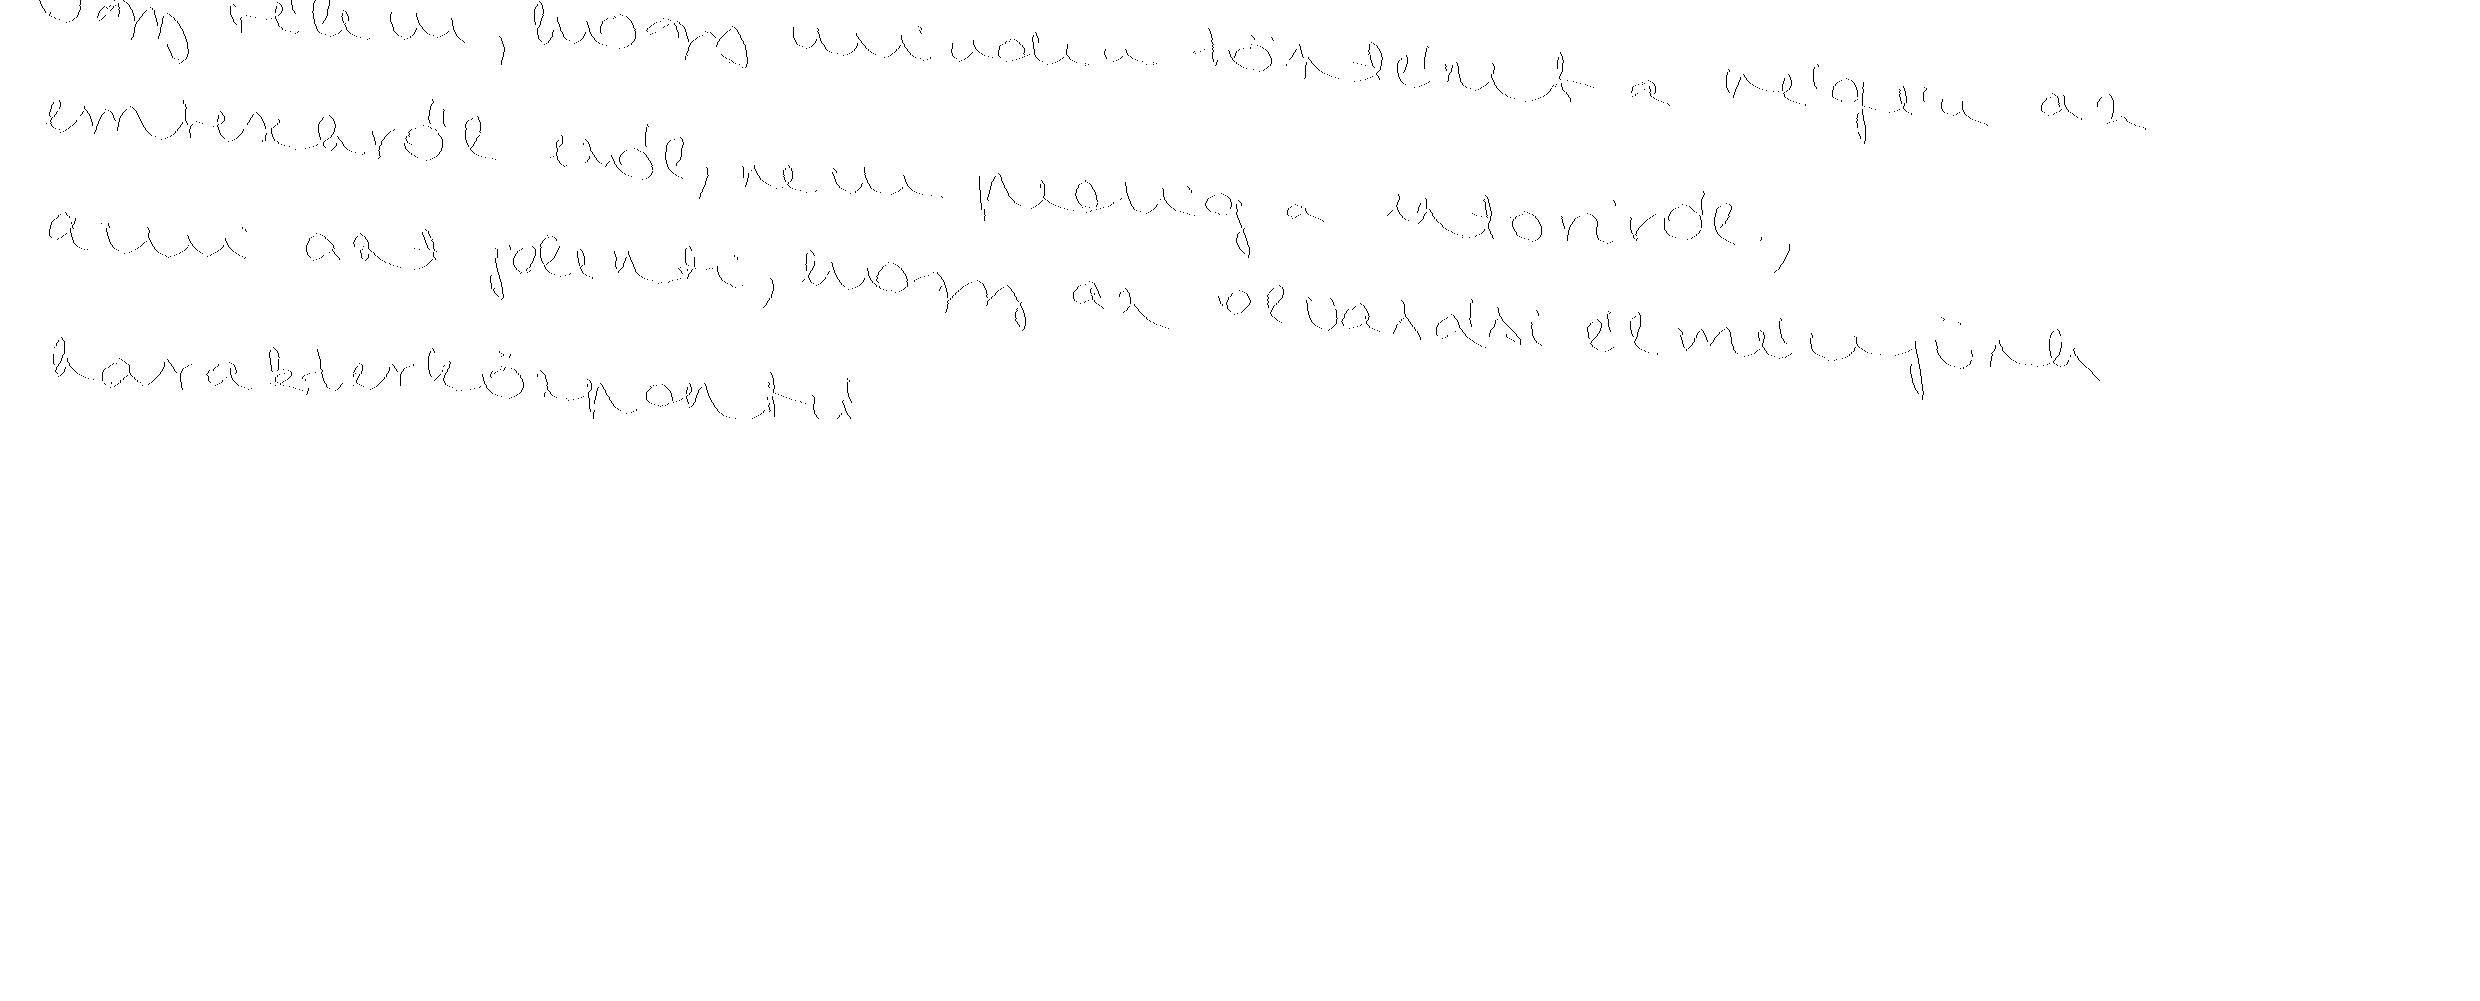 Úgy vélem, hogy minden történet a végén az
emberekről szól, nem pedig a sztoriról,
ami azt jelenti, hogy az olvasási élményünk
karakterközpontú